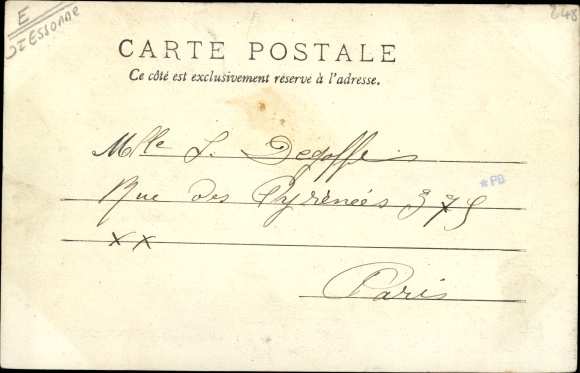 E
Essonne
248
CARTE POSTALE
Ce côté est exclusivement réservé à l'adresse.
Mlle L. Degoffe
Rue des Pyrénées 375
*PB
xx
Paris